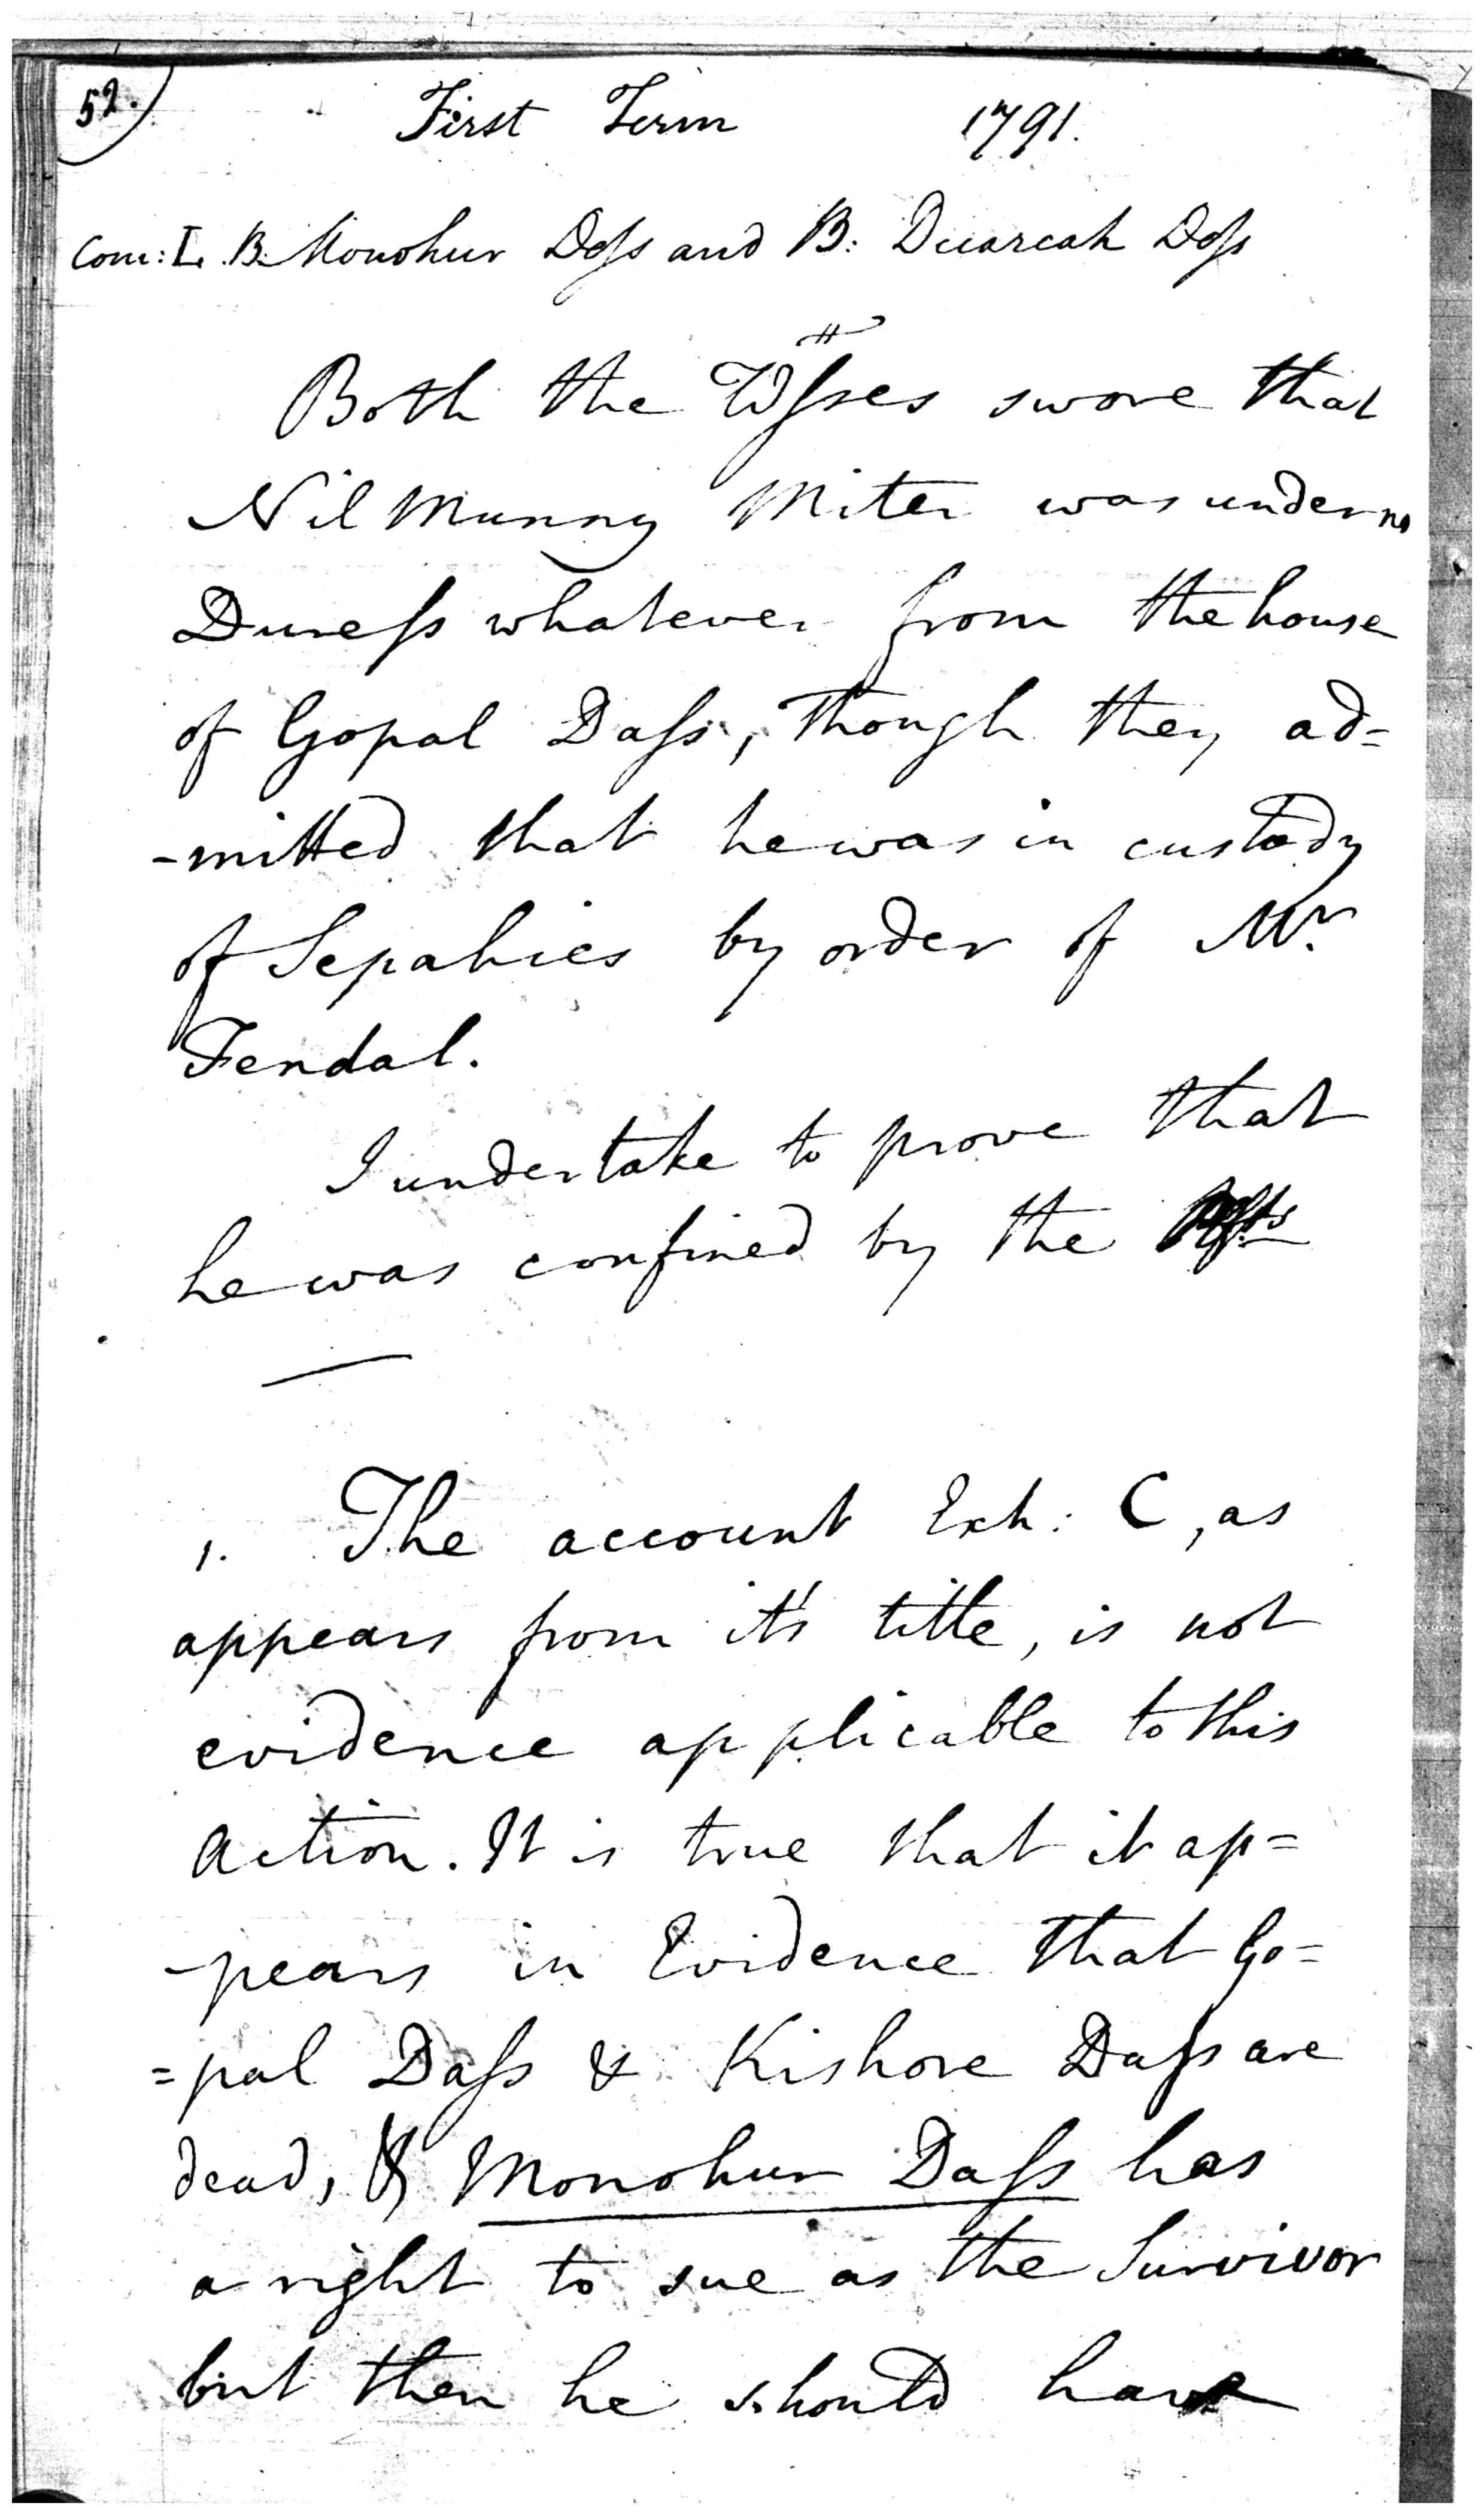 52.
First Term 1791.
Com: L. B. Monohur Doſs and B: Duarcah Doſs
#
Both the Wſses swore that
Nil Munny Miter was under no
Dureſs whatever from the house
of Gopal Daſs, though they ad=
-mitted that he was in custody
of Sepahies by order of Mr.
Fendal.
I undertake to prove that
he was confined by the
1. The account Exh: C, as
appears from it's title, is not
evidence applicable to this
Action. It is true that it ap=
-pears in Evidence that Go=
=pal Daſs & Kishore Daſs are
dead, & Monohur Daſs has
a right to sue as the Survivor
but then he should have